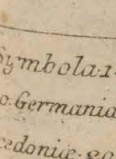 Symbola.1
o Germania
cedoniæ.